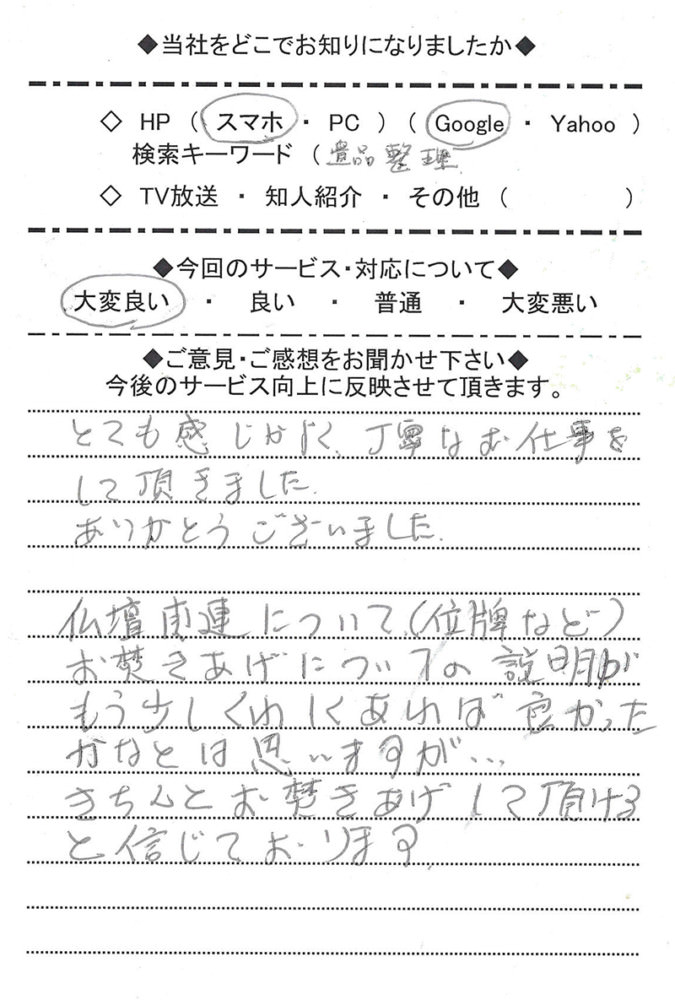 ◆当社をどこでお知りになりましたか◆
◇ HP （ スマホ ・ PC ）（ Google ・ Yahoo ）
検索キーワード （ 遺品整理
◇ TV放送 ・ 知人紹介 ・ その他 （ ）
◆今回のサービス・対応について◆
大変良い ・ 良い ・ 普通 ・ 大変悪い
◆ご意見・ご感想をお聞かせ下さい◆
今後のサービス向上に反映させて頂きます。
とても感じがよく、丁寧なお仕事を
して頂きました.
ありがとうございました.
仏壇関連について、（位牌など）
お焚きあげについての説明が
もう少しくわしくあれば良かった
かなとは思いますが…
きちんとお焚きあげして頂ける
と信じております.